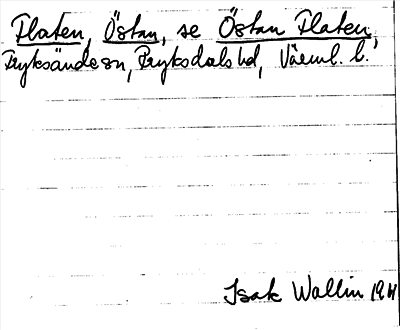 Flaten, Östan, se Östan Flaten,
Fryksände sn, Fryksdals hd, Värml. l.
Isak Wallin